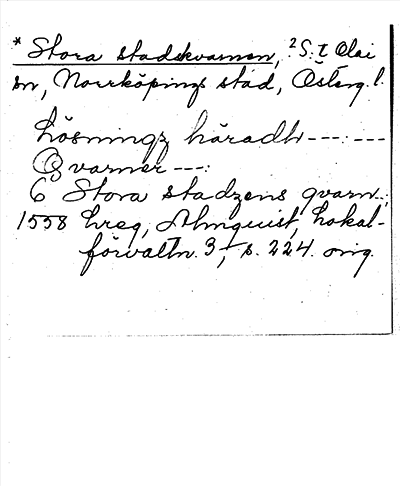 * Stora stadskvarnen, ²S:t Olai
sn, Norrköpings stad, Österg. l.
Lösningz häradh ---:---
Qvarner ---:
6 Stora stadzens qvarn.;
1558 hreg, Almquist, Lokal-
förvaltn. 3, s. 224. orig.